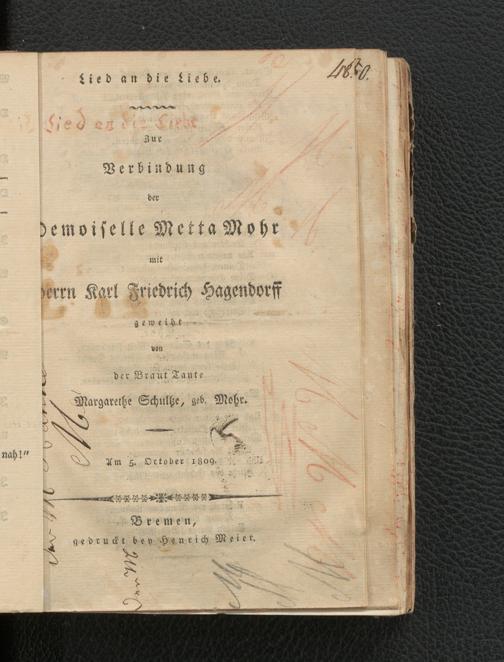 Lied an die Liebe.
48.50.
Lied an die Liebe
Zur
Verbindung
der
Demoiselle Metta Mohr
mit
Herrn Karl Friedrich Hagendorff
geweiht
von
der Braut Tante
Margarethe Schulhe, geb. Mohr.
nah!"
Am 5. October 1809.
Bremen,
gedruckt bey Henrich Meier.